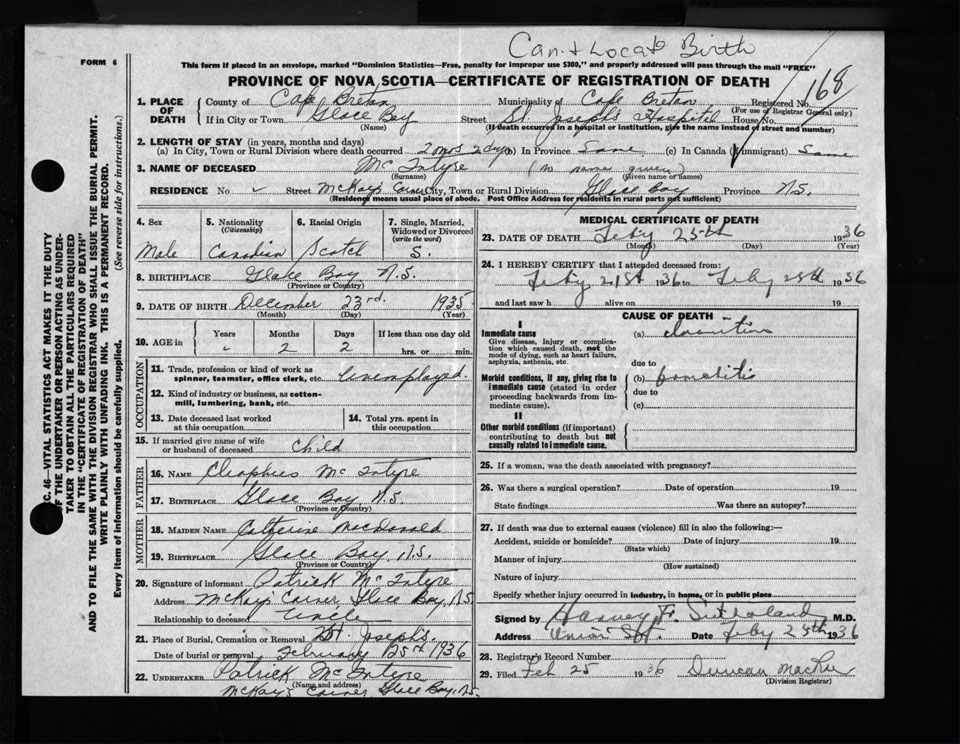 Can't Locate Birth
FORM 6
This form if placed in an envelope, marked "Dominion Statistics—Free, penalty for improper use $300," and properly addressed will pass through the mail "FREE"
PROVINCE OF NOVA SCOTIA—CERTIFICATE OF REGISTRATION OF DEATH
168
1. PLACE OF DEATH
County of Cape Breton Municipality of Cape Breton Registered No.
(For use of Registrar General only)
If in City or Town Glace Bay Street St. Joseph's Hospital House No.
(Name) (If death occurred in a hospital or institution, give the name instead of street and number)
2. LENGTH OF STAY (in years, months and days)
(a) In City, Town or Rural Division where death occurred 2 mos 2 days (b) In Province Same (c) In Canada (if immigrant) Same
3. NAME OF DECEASED McIntyre (no name given)
(Surname) (Given name or names)
RESIDENCE No. Street McKay's Corner City, Town or Rural Division Glace Bay Province N.S.
(Residence means usual place of abode. Post Office Address for residents in rural parts not sufficient)
4. Sex Male
5. Nationality (Citizenship) Canadian
6. Racial Origin Scotch
7. Single, Married, Widowed or Divorced (write the word) S.
8. BIRTHPLACE Glace Bay N.S.
(Province or Country)
9. DATE OF BIRTH December 23rd. 1935
(Month) (Day) (Year)
10. AGE in Years Months 2 Days 2 If less than one day old hrs. or min.
OCCUPATION
11. Trade, profession or kind of work as spinner, teamster, office clerk, etc. Unemployed.
12. Kind of industry or business, as cotton-mill, lumbering, bank, etc.
13. Date deceased last worked at this occupation
14. Total yrs. spent in this occupation
15. If married give name of wife or husband of deceased Child
FATHER
16. NAME Cleophus McIntyre
17. BIRTHPLACE Glace Bay N.S.
(Province or Country)
MOTHER
18. MAIDEN NAME Catherine MacDonald
19. BIRTHPLACE Glace Bay N.S.
(Province or Country)
20. Signature of informant Patrick McIntyre
Address McKay's Corner, Glace Bay, N.S.
Relationship to deceased Uncle
21. Place of Burial, Cremation or Removal St. Joseph's.
Date of burial or removal February 1936
22. UNDERTAKER Patrick McIntyre
(Name and address)
McKay's Corner Glace Bay, N.S.
MEDICAL CERTIFICATE OF DEATH
23. DATE OF DEATH Feby 25th 1936
(Month) (Day) (Year)
24. I HEREBY CERTIFY that I attended deceased from:
Feby 21st 1936 to Feby 25th 1936
and last saw h alive on 19
CAUSE OF DEATH
I
Immediate cause
Give disease, injury or complication which caused death, not the mode of dying, such as heart failure, asphyxia, asthenia, etc.
(a)
due to
Morbid conditions, if any, giving rise to immediate cause (stated in order proceeding backwards from immediate cause).
(b)
due to
(c)
II
Other morbid conditions (if important) contributing to death but not causally related to immediate cause.
25. If a woman, was the death associated with pregnancy?
26. Was there a surgical operation? Date of operation 19
State findings Was there an autopsy?
27. If death was due to external causes (violence) fill in also the following:—
Accident, suicide or homicide? Date of injury 19
(State which)
Manner of injury
(How sustained)
Nature of injury
Specify whether injury occurred in industry, in home, or in public place
Signed by Harvey F. Sutherland M.D.
Address Date Feby 25th 1936
28. Registrar's Record Number
29. Filed Feb 25 1936 Duncan
(Division Registrar)
C. 46—VITAL STATISTICS ACT MAKES IT THE DUTY
OF THE UNDERTAKER OR PERSON ACTING AS UNDER-
TAKER TO OBTAIN ALL THE PARTICULARS REQUIRED
IN THE "CERTIFICATE OF REGISTRATION OF DEATH"
AND TO FILE THE SAME WITH THE DIVISION REGISTRAR WHO SHALL ISSUE THE BURIAL PERMIT.
WRITE PLAINLY WITH UNFADING INK. THIS IS A PERMANENT RECORD.
Every item of information should be carefully supplied. (See reverse side for instructions.)